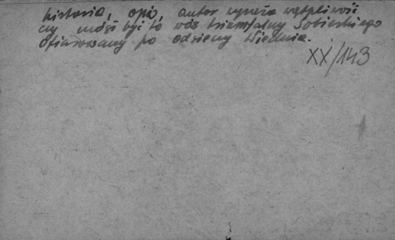 historia, opis, autor wyraża wątpliwość
czy mógł być to wóz triumfalny Sobieskiego
ofiarowany po odsieczy Wiednia.
XX/143